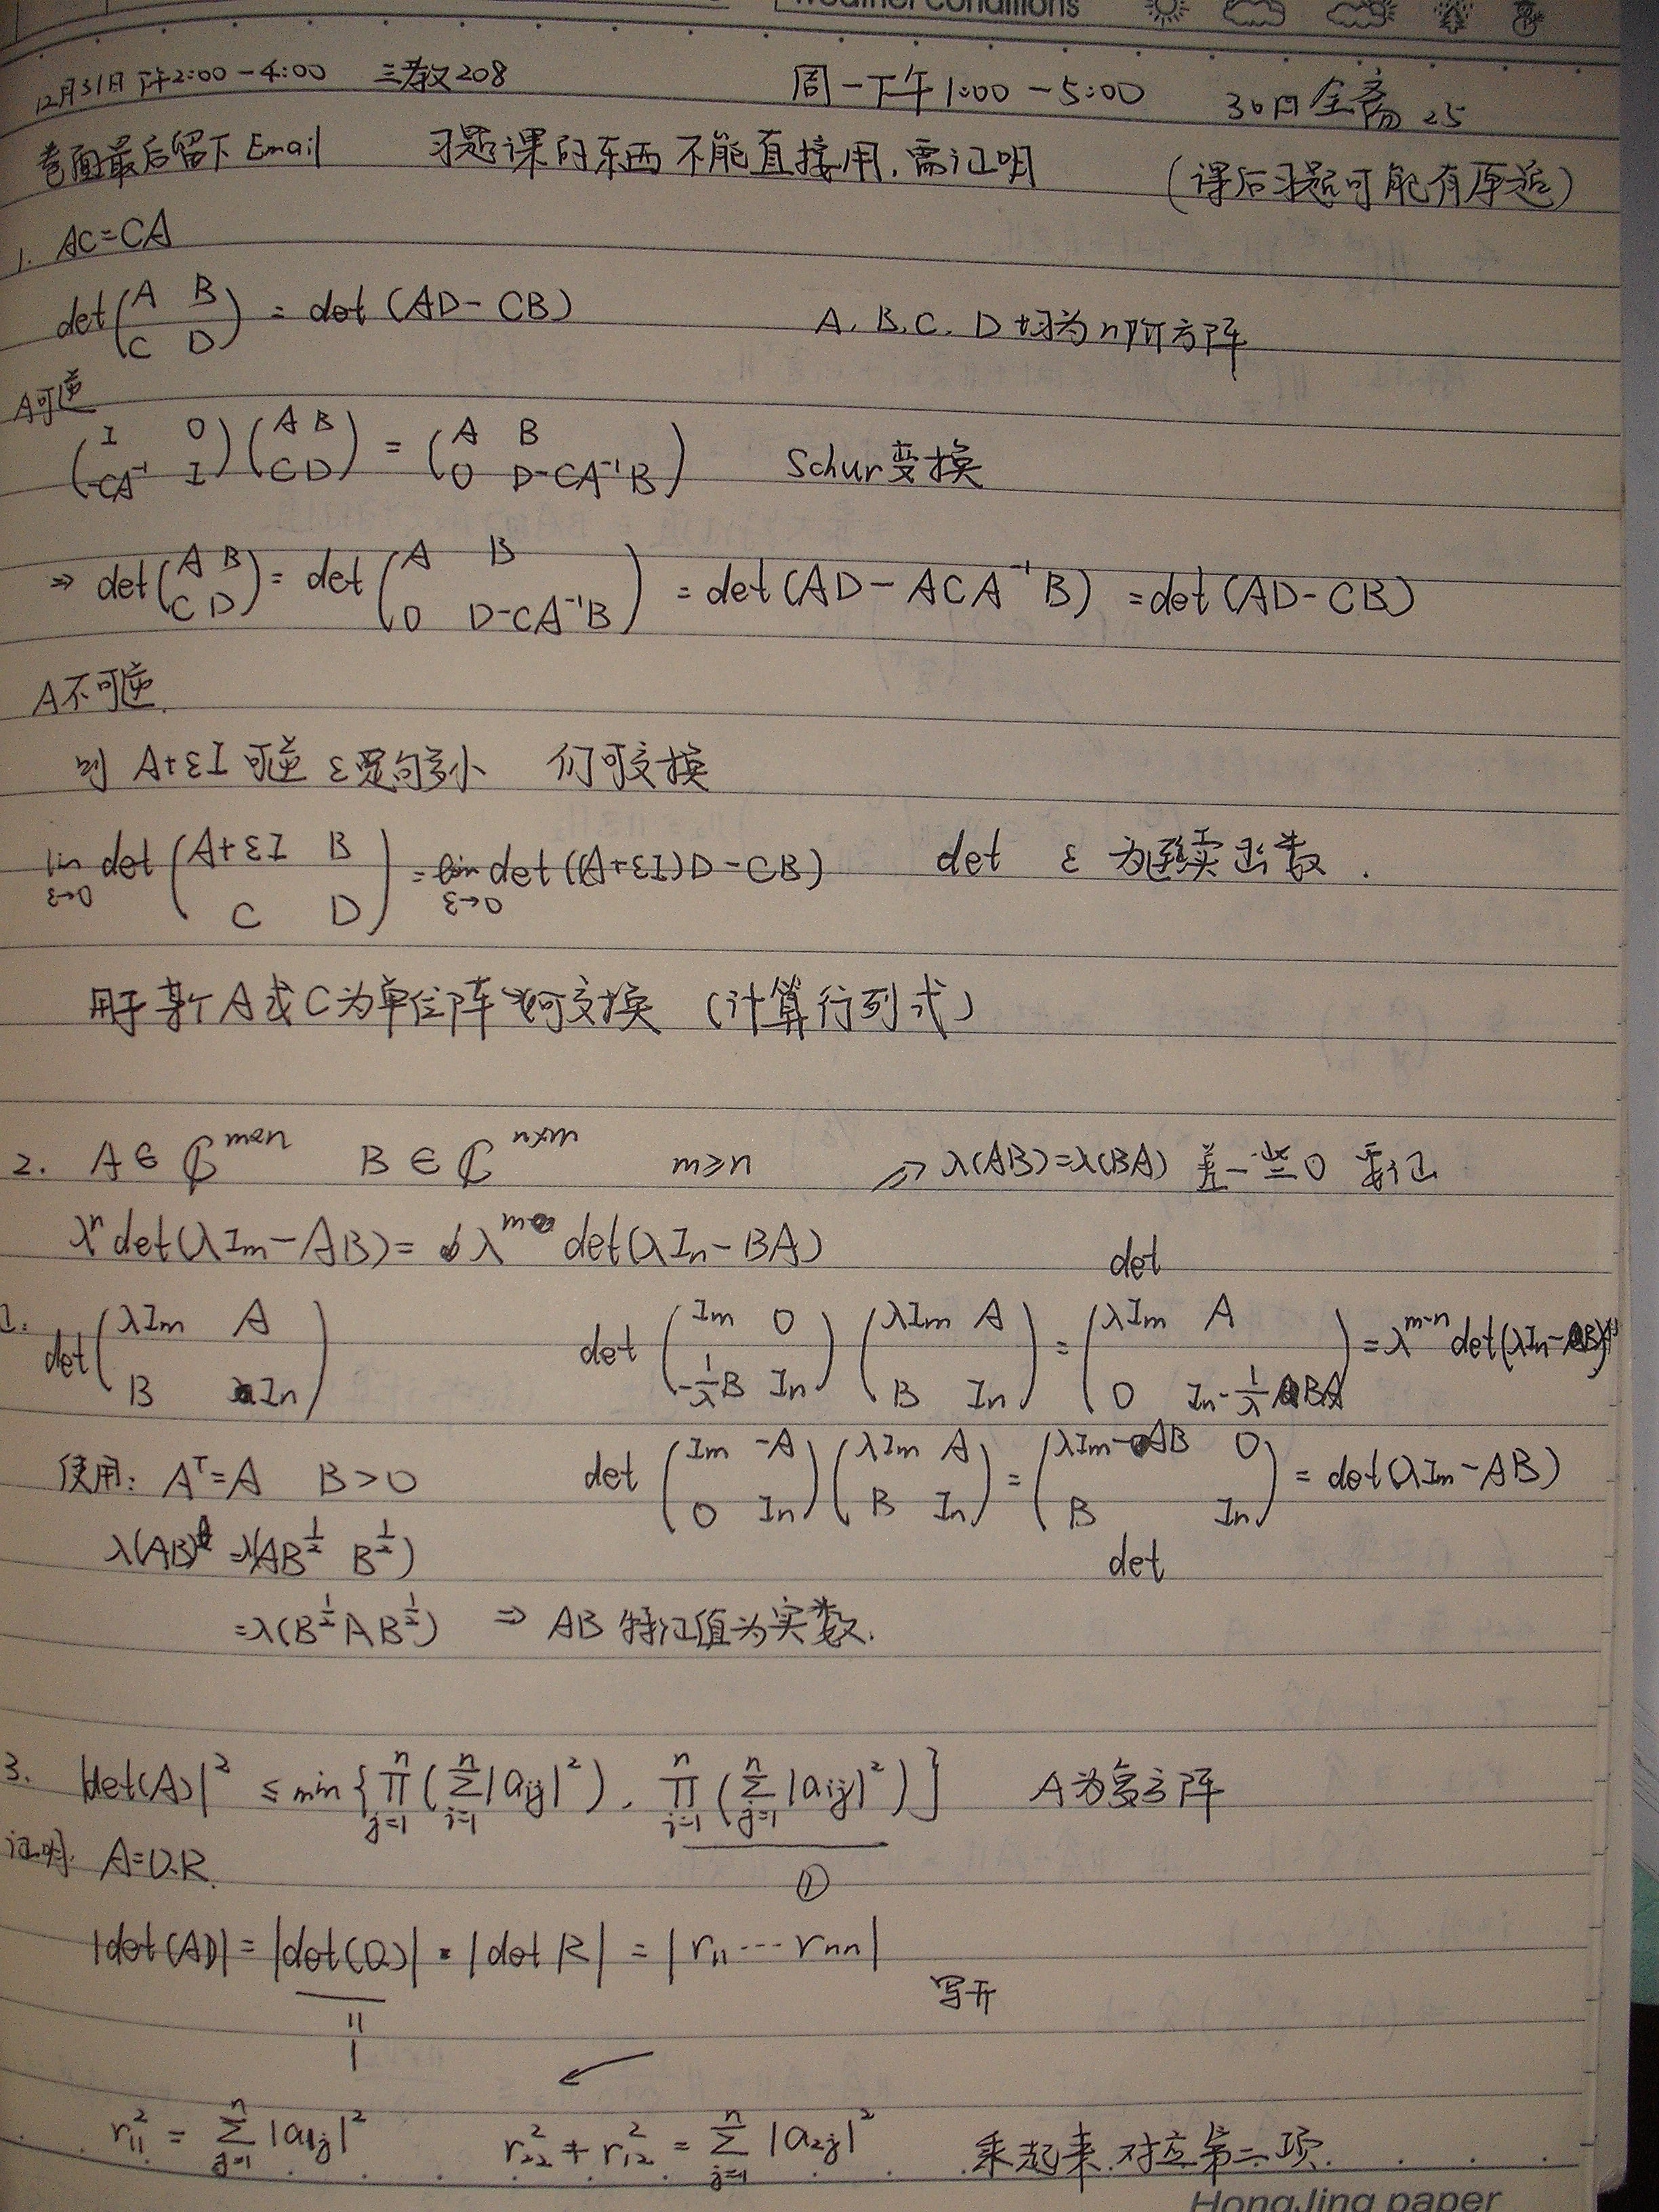 Weather conditions
12月31日 下午2:00-4:00 三教208 周一下午1:00-5:00 30日全斋25
卷面最后留下Email 习题课的东西不能直接用,需证明 (课后习题可能有原题)
1. AC=CA
det(A B; C D) = det(AD-CB) A.B.C.D均为n阶方阵
A可逆
(I 0; -CA⁻¹ I)(A B; C D) = (A B; 0 D-CA⁻¹B) Schur变换
⇒ det(A B; C D) = det(A B; 0 D-CA⁻¹B) = det(AD-ACA⁻¹B) = det(AD-CB)
A不可逆.
则 A+εI可逆 ε足够小 仍可交换
lim ε→0 det(A+εI B; C D) = lim ε→0 det((A+εI)D-CB) det ε 为连续函数.
用于某个A或C为单位阵 可交换 (计算行列式)
2. A∈ℂ^{m×n} B∈ℂ^{n×m} m≥n ⇗ λ(AB)=λ(BA) 差一些0 要证
λⁿdet(λIm-AB) = λ^m det(λIn-BA)
det
1. det(λIm A; B In) det(Im 0; -1/λB In)(λIm A; B In) = (λIm A; 0 In-1/λBA) = λ^{m-n}det(λIn-BA)
使用: Aᵀ=A B>0 det(Im -A; 0 In)(λIm A; B In) = (λIm-AB 0; B In) = det(λIm-AB)
λ(AB) = λ(AB^{1/2} B^{1/2}) det
=λ(B^{1/2}AB^{1/2}) ⇒ AB 特征值为实数.
3. |det(A)|² ≤ min{∏_{j=1}^{n}(∑_{i=1}^{n}|aij|²), ∏_{i=1}^{n}(∑_{j=1}^{n}|aij|²)} A为复方阵
证明. A=Q.R. ①
|det(A)| = |det(Q)|·|det R| = |r11⋯rnn|
写开
=1
r11² = ∑_{j=1}^{n}|a1j|² r22²+r12² = ∑_{j=1}^{n}|a2j|² 乘起来.对应第二项.
HongJing paper